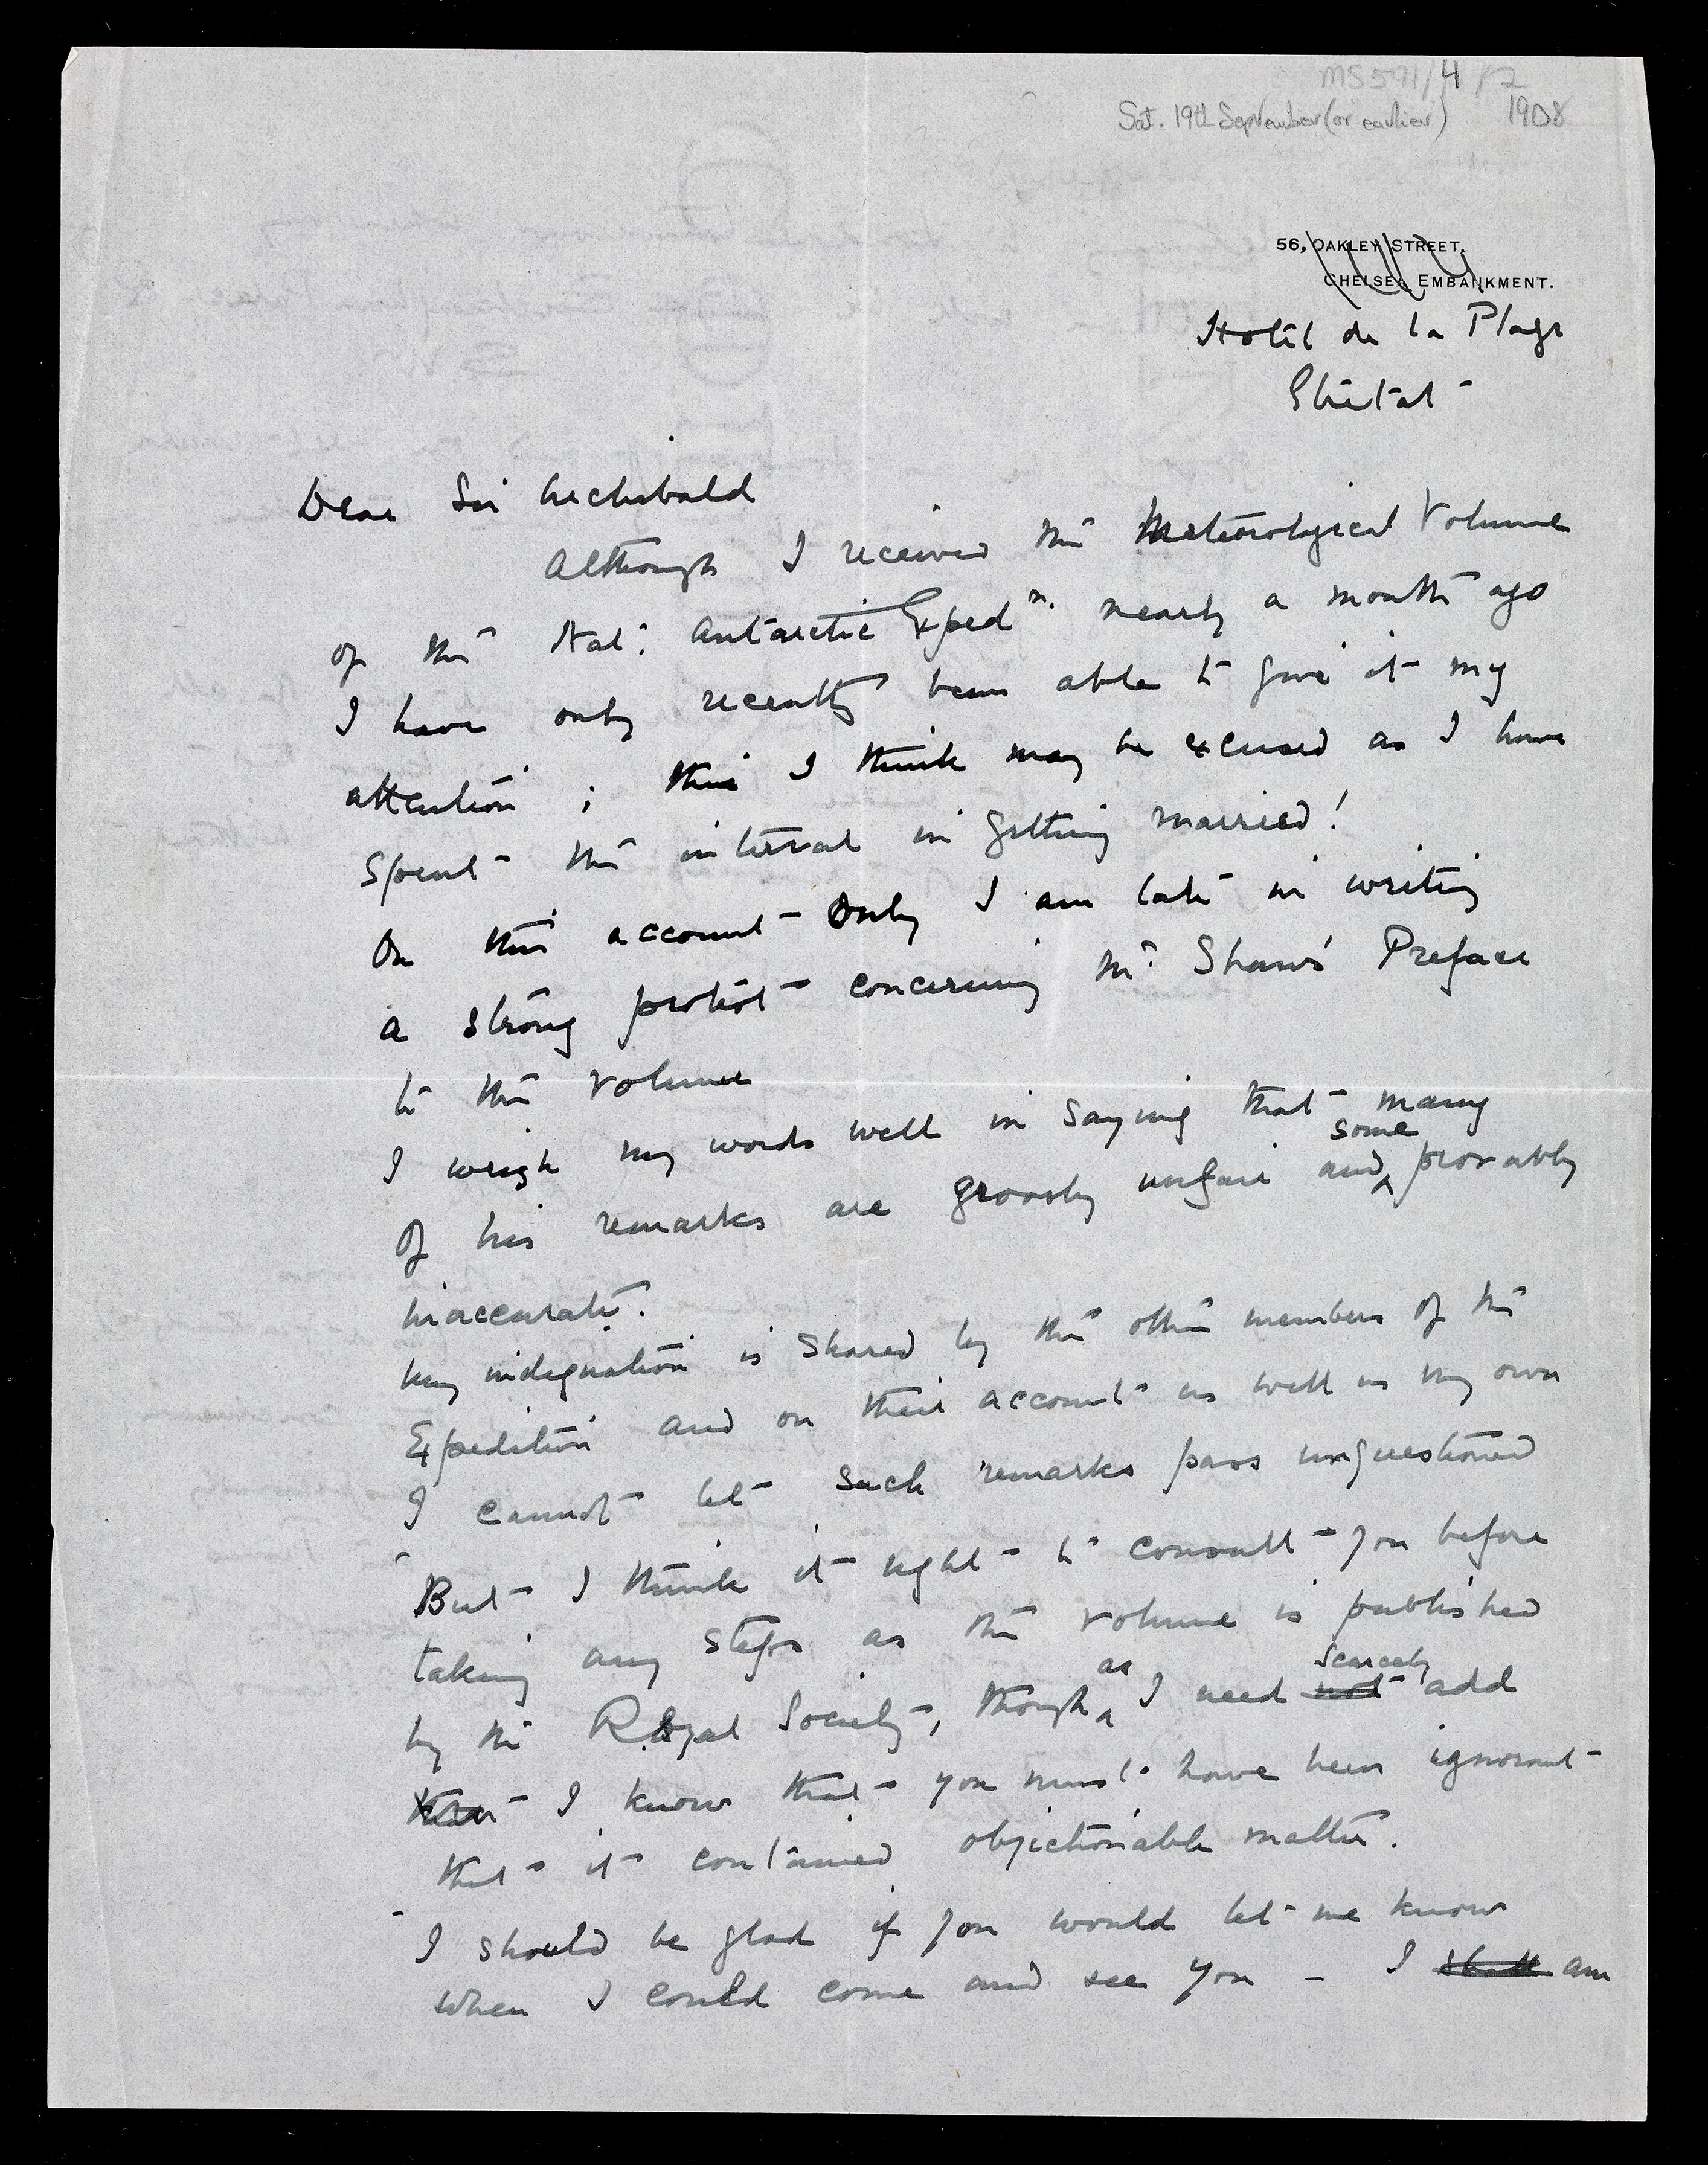 MS591/4/2
Sat. 19th September (or earlier) 1908
56, OAKLEY STREET,
CHELSEA EMBANKMENT.
Hotel de la Plage
Etretat
Dear Sir Archibald
Although I received the Meteorological Volume
of the Nat: Antarctic Expedn. nearly a month ago
I have only recently been able to give it my
attention ; this I think may be excused as I have
spent the interval in getting married!
On this account only I am late in writing
a strong protest concerning Mr. Shaw's Preface
to the volume
I weigh my words well in saying that many
of his remarks are grossly unfair and some provably
inaccurate.
My indignation is shared by the other members of the
Expedition and on their account as well as my own
I cannot let such remarks pass unquestioned
But I think it right to consult you before
taking any steps as the volume is published
by the Royal Society, though as I need not scarcely add
that I know that you must have been ignorant
that it contained objectionable matter.
I should be glad if you would let me know
when I could come and see you - I shall am